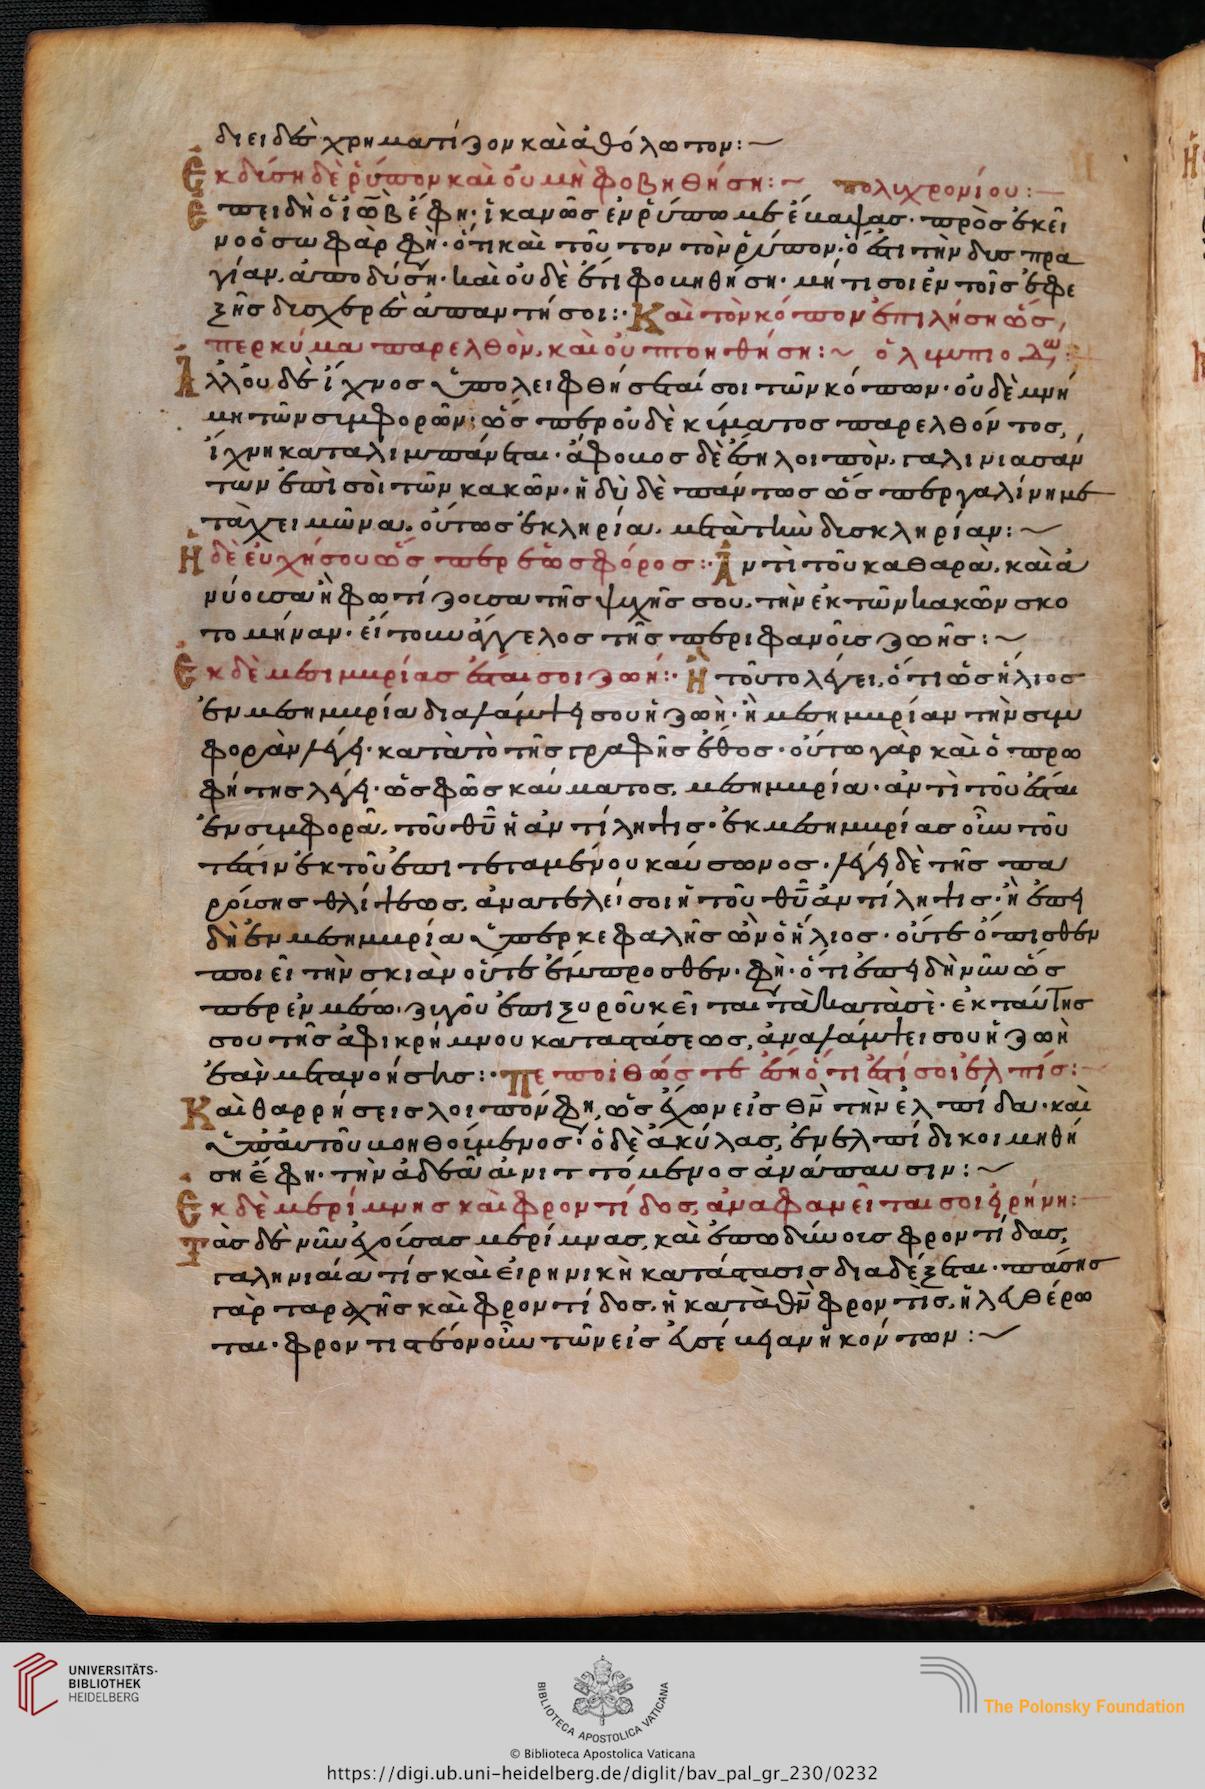 διειδὲς χρηματίζον καὶ ἀθόλωτον:
Ἐκδύσῃ δὲ ῥύπον καὶ οὐ μὴ φοβηθήσῃ: πολυχρονίου:
Ἐπειδὴ ὁ ἰὼβ ἔφη· ἱκανῶς ἐν ῥύπω με ἔβαψας· πρὸς ἐκεῖ
νο ὁ σωφὰρ φὴ· ὅτι καὶ τοῦτον τὸν ῥύπον· ὅ ἐστι τὴν δυσπρα
γίαν, ἀποδύσῃ· καὶ οὐδὲ ἔτι φοβηθήσῃ· μή τι σοι ἐν τοῖς ἐφε
ξῆς δυσχερὲς ἀπαντήσοι: Καὶ τὸν κόπον ἐπιλήσῃ ὥσ
περ κύμα παρελθὸν, καὶ οὐ πτοηθήσῃ: ὀλυμπιοδώ:
Ἀλλ' οὐδὲ ἴχνος ὑπολειφθήσεταί σοι τῶν κόπων· οὐδὲ μνή
μη τῶν σιμφορῶν· ὥσπερ οὐδὲ κύματος παρελθόντος,
ἴχνη καταλιμπάνεται· ἄφοβος δὲ ἔση λοιπὸν, γαλινιασάν
των ἐπὶ σοὶ τῶν κακῶν· ἡδὺ δὲ πάντως ὥσπερ γαλίνη με
τὰ χειμῶνα, οὕτως ἐκληρία, μετὰ τὴν δισκληρίαν:
Ἡ δὲ εὐχή σου ὥσπερ ἑωσφόρος: Ἀντὶ τοῦ καθαρὰ, καὶ ἀ
νύοισα ἢ φωτίζοισα τῆς ψιχῆς σου, τὴν ἐκ τῶν κακῶν σκο
τομήναν· εἴτουν ἄγγελος τῆς περιφανοῖς ζωῆς:
Ἐκ δὲ μεσιμβρίας ἔσται σοι ζωή: Ἢ τοῦτο λέγει, ὅτι ὡς ἥλιος
ἐν μεσημβρία διαλάμψει σου ἡ ζωὴ· ἢ μεσημβρίαν τὴν σιμ
φορὰν λέγει· κατὰ τὸ τῆς γραφῆς ἔθος· οὕτω γὰρ καὶ ὁ προ
φήτης λέγει· ὡς φῶς καύματος, μεσημβρία· ἀντὶ τοῦ ἔσται
ἐν σιμφορᾶ, τοῦ θυ ἡ ἀντίληψις· ἐκ μεσημβρίας οὖν του
τέστιν ἐκ τοῦ ἐπιτεταμένου καύσωνος· λέγει δὲ τῆς πα
ρούσης θλίψεως, ἀνατελεί σοι ἡ τοῦ θυ ἀντίληψις· ἢ ἐπει
δὴ ἐν μεσημβρία ὑπὲρ κεφαλῆς ὢν ὁ ἥλιος· οὔτε ὄπισθεν
ποιεῖ τὴν σκιὰν οὔτε ἔμπροσθεν· φὴ· ὅτι ἐπειδὴ νῦν ὥσ
περ ἐν μέσω, ζιγοῦ ἐπὶ ξυροῦ κεῖται τὰ κατὰ σὲ· ἐκ ταύτης
σου τῆς ἀφικρήμνου καταστάσεως, ἀναλάμψει σου ἡ ζωὴ
ἐὰν μετανοήσης: Πεποιθώς τε ἔση ὅτι ἔστί σοι ἐλπίς:
Καὶ θαρρήσεις λοιπόν φη, ὡς ἔχων εἰς θν τὴν ἐλπίδα· καὶ
ὑπ' αὐτοῦ βοηθούμενος· ὁ δὲ ἀκύλας, ἐν ἐλπίδι κοιμηθή
ση ἔφη· τὴν ἄδειαν αἰνιττόμενος ἀνάπαυσιν:
Ἐκ δὲ μερίμνης καὶ φροντίδος, ἀναφανεῖται σοι εἰρήνη:
Τὰς δὲ νῦν ἐχοίσας μερίμνας, καὶ ἐπωδύνοις φροντίδας,
γαληνιαία τίς καὶ εἰρηνικὴ κατάστασις διαδέξεται· πάσης
γὰρ ταραχῆς καὶ φροντίδος, ἡ κατὰ θν φροντὶς, ἠλευθέρω
ται· φροντιστέον οὖν τῶν εἰς εὐσέβειαν ἡκόντων:
UNIVERSITÄTS-
BIBLIOTHEK
HEIDELBERG
BIBLIOTECA APOSTOLICA VATICANA
The Polonsky Foundation
© Biblioteca Apostolica Vaticana
https://digi.ub.uni-heidelberg.de/diglit/bav_pal_gr_230/0232